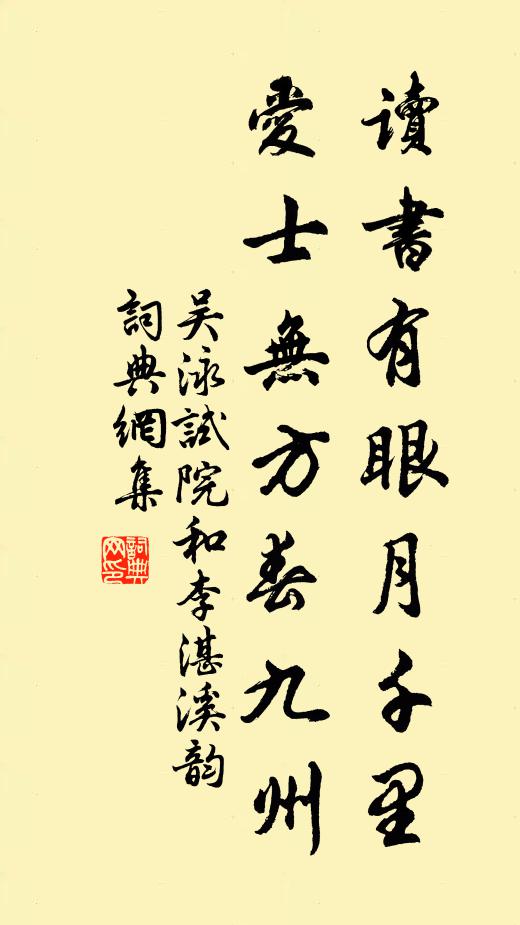 讀書有眼月千里
愛士無方春九州
吴泳試院和李湛溪韵
詞典網集
詞典
网印